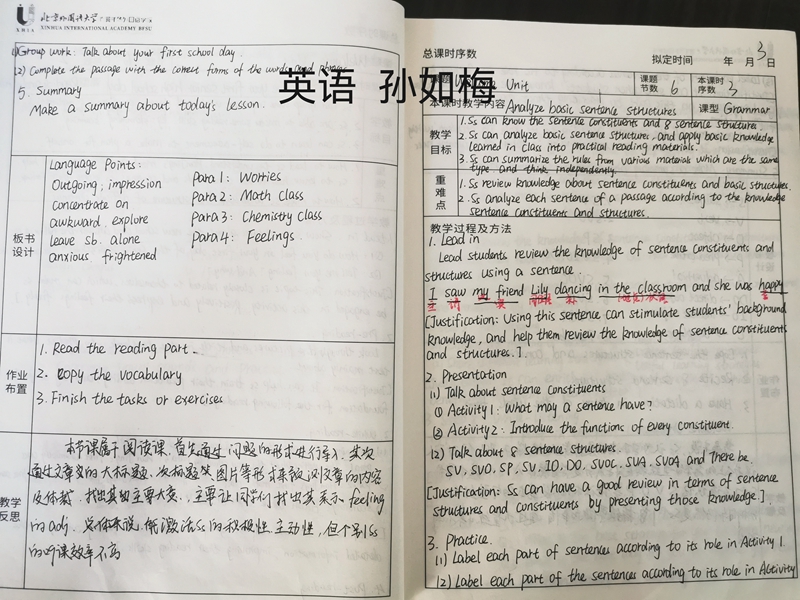 XHIA
XINHUA INTERNATIONAL ACADEMY BFSU
(1) Group work: Talk about your first school day.
(2) Complete the passage with the correct forms of the words and phrases
5. Summary
Make a summary about today's lesson.
板书
设计
Language Points:
Outgoing, impression
concentrate on
awkward explore
leave sb. alone
anxious frightened
Para 1: Worries
Para 2: Math Class
Para 3: Chemistry Class
Para 4: Feelings
作业
布置
1. Read the reading part.
2. Copy the vocabulary
3. Finish the tasks or exercises
教学
反思
本节课属于阅读课,首先通过问题的形式进行导入,其次
通过文章的大标题、次标题以及图片等形式来预测文章的内容
及体裁,找出其主要大意,主要让同学们找出其表示feeling
的adj. 总体来说,能激活Ss的积极性,主动性,但个别Ss
的听课效率不高
英语 孙如梅
总课时序数
拟定时间 年 月3日
Unit
课题
节数 6
本课时
序数 3
本课时教学内容 Analyze basic sentence structures
课型 Grammar
教学
目标
1. Ss can know the sentence constituents and 8 sentence structures
2. Ss can analyze basic sentence structures, and apply basic knowledge
learned in class into practical reading materials.
3. Ss can summarize the rules from various materials which are the same
type and think independently.
重
难
点
1. Ss review knowledge about sentence constituents and basic structures.
2. Ss analyze each sentence of a passage according to the knowledge
sentence constituents and structures.
教学过程及方法
1. Lead in
Lead students review the knowledge of sentence constituents and
structures using a sentence.
I saw my friend Lily dancing in the classroom and she was happy
[Justification: Using this sentence can stimulate students' background
knowledge, and help them review the knowledge of sentence constituents
and structures.].
2. Presentation
(1) Talk about sentence constituents
① Activity 1: What may a sentence have?
② Activity 2: Introduce the functions of every constituent.
(2) Talk about 8 sentence structures
SV, SVO, SP, SV, IO, DO, SVOC, SVA, SVOA and There be.
[Justification: Ss can have a good review in terms of sentence
structures and constituents by presenting those knowledge.]
3. Practice.
(1) Label each part of sentences according to its role in Activity 1.
(2) Label each part of the sentences according to its role in Activity